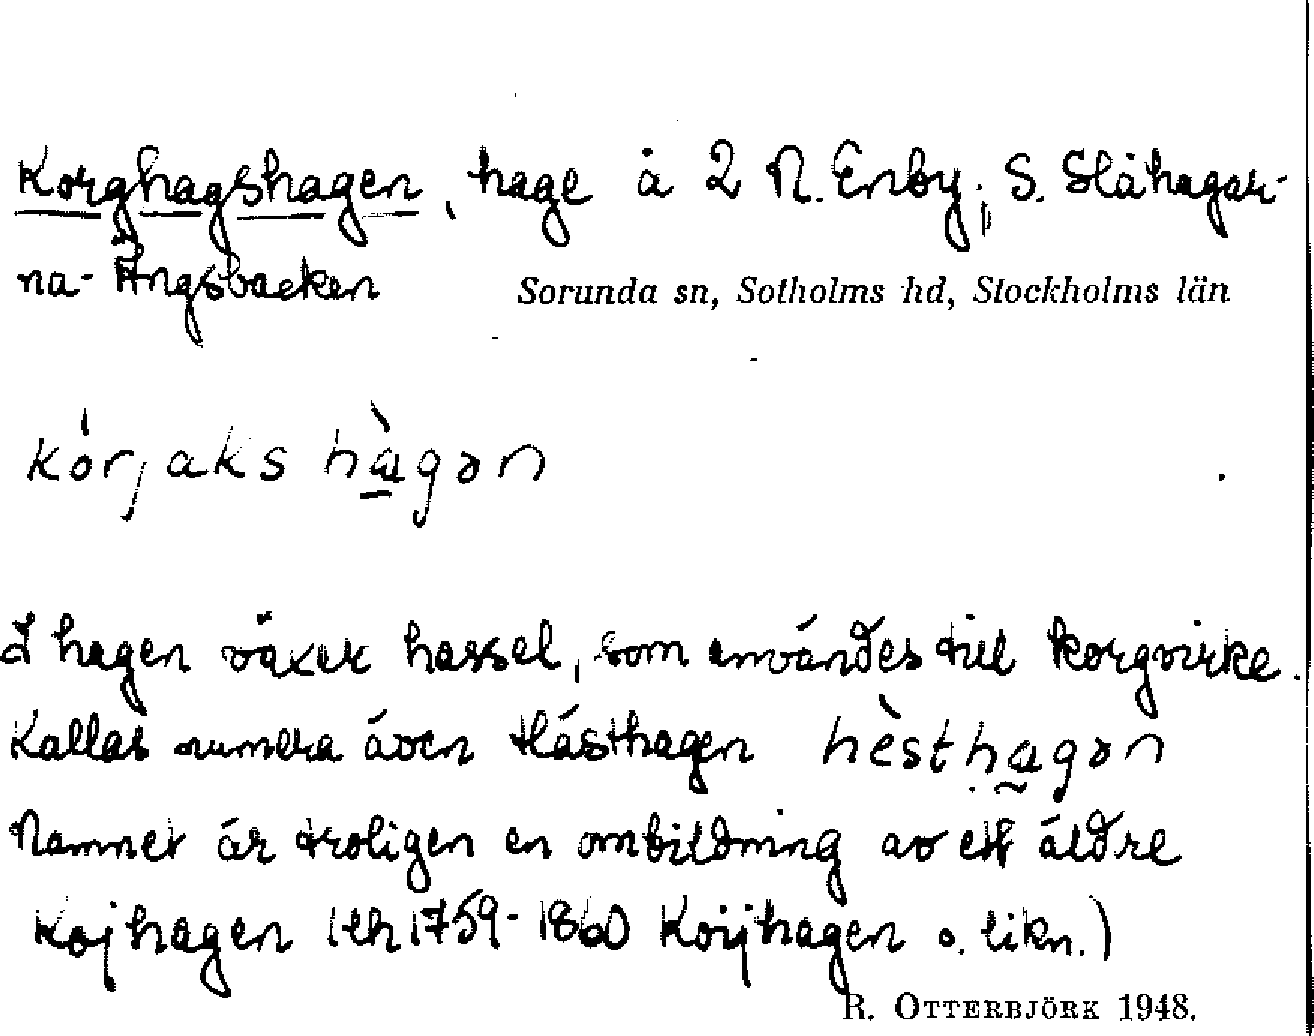 Korghagshagen, hage å 2 N. Enby; S. Slåhagar-
na- Ängsbacken
Sorunda sn, Sotholms hd, Stockholms län
kòrjaks hàgən
I hagen växer hassel, som användes till korgvirke.
Kallas numera även Hästhagen hèsthagən
Namnet är troligen en ombildning av ett äldre
Kojhagen (Lh 1759-1860 Koijhagen o. likn.)
R. OTTERBJÖRK 1948.